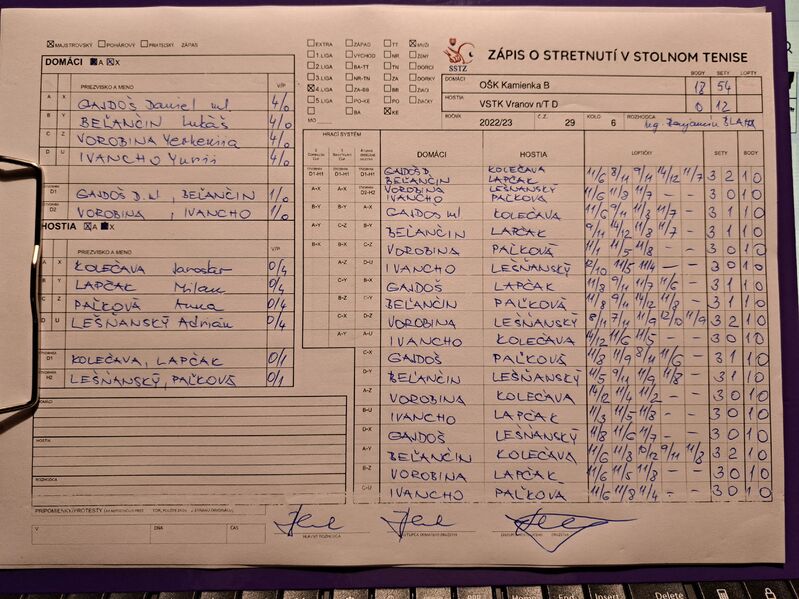 MAJSTROVSKÝ POHÁROVÝ PRIATEĽSKÝ ZÁPAS
EXTRA ZÁPAD TT MUŽI
1. LIGA VÝCHOD NR ŽENY
2. LIGA BA-TT TN DORCI
3. LIGA NR-TN ZA DORKY
4. LIGA ZA-BB BB ŽIACI
5. LIGA PO-KE PO ŽIAČKY
BA KE
MO
SSTZ
ZÁPIS O STRETNUTÍ V STOLNOM TENISE
BODY SETY LOPTY
DOMÁCI OŠK Kamienka B 18 54
HOSTIA VSTK Vranov n/T D 0 12
ROČNÍK 2022/23 Č.Z. 29 KOLO 6 ROZHODCA Ing. Benjamin
DOMÁCI A X
PRIEZVISKO A MENO V/P
A X GAJDOŠ Daniel ml 4/0
B Y BEĽANČIN Lukáš 4/0
C Z VOROBINA Yevheniia 4/0
D U IVANCHO Yurii 4/0
D1 GAJDOŠ D. ml, BEĽANČIN 1/0
D2 VOROBINA, IVANCHO 1/0
HOSTIA A X
PRIEZVISKO A MENO V/P
A X KOLEČAVA Jaroslav 0/4
B Y LAPČAK Milan 0/4
C Z PAĽKOVÁ Anna 0/4
D U LEŠŇANSKÝ Adrián 0/4
D1 KOLEČAVA, LAPČAK 0/1
H2 LEŠŇANSKÝ, PAĽKOVÁ 0/1
DOMÁCI
HOSTIA
ROZHODCA
PRIPOMIENKY/PROTESTY
V DŇA ČAS
HRACÍ SYSTÉM DOMÁCI HOSTIA LOPTIČKY SETY BODY
D1-H1 D1-H1 D1-H1 GAJDOŠ D. KOLEČAVA 11/6 8/11 9/11 14/12 11/7 3 2 1 0
BEĽANČIN LAPČAK
A-X A-X D2-H2 VOROBINA LEŠŇANSKÝ 11/6 11/3 11/7 - - 3 0 1 0
IVANCHO PAĽKOVÁ
B-Y B-Y A-X GAJDOŠ ml KOLEČAVA 11/6 9/11 11/3 11/7 - 3 1 1 0
A-Y C-Z B-Y BEĽANČIN LAPČAK 9/11 14/12 11/8 11/7 - 3 1 1 0
B-X B-X C-Z VOROBINA PAĽKOVÁ 11/1 11/5 11/8 - - 3 0 1 0
A-Z D-U IVANCHO LEŠŇANSKÝ 12/10 11/5 11/4 - - 3 0 1 0
C-X A-Y GAJDOŠ LAPČAK 11/8 9/11 11/7 11/6 - 3 1 1 0
C-Y B-X BEĽANČIN PAĽKOVÁ 11/8 9/11 14/2 11/8 - 3 1 1 0
B-Z C-Y VOROBINA LEŠŇANSKÝ 8/11 7/11 11/9 12/10 11/9 3 2 1 0
C-Z D-X IVANCHO KOLEČAVA 14/12 11/6 11/5 - - 3 0 1 0
C-X GAJDOŠ PAĽKOVÁ 11/8 11/9 8/11 11/6 - 3 1 1 0
D-Y BEĽANČIN LEŠŇANSKÝ 11/5 9/11 11/9 11/8 - 3 1 1 0
A-Z VOROBINA KOLEČAVA 14/2 11/4 11/2 - - 3 0 1 0
B-U IVANCHO LAPČAK 11/3 11/5 11/8 - - 3 0 1 0
D-X GAJDOŠ LEŠŇANSKÝ 11/8 11/6 11/7 - - 3 0 1 0
A-Y BEĽANČIN KOLEČAVA 11/6 11/8 10/12 9/11 11/8 3 2 1 0
B-Z VOROBINA LAPČAK 11/6 11/5 11/8 - - 3 0 1 0
C-U IVANCHO PAĽKOVÁ 11/6 11/8 11/4 - - 3 0 1 0
HLAVNÝ ROZHODCA